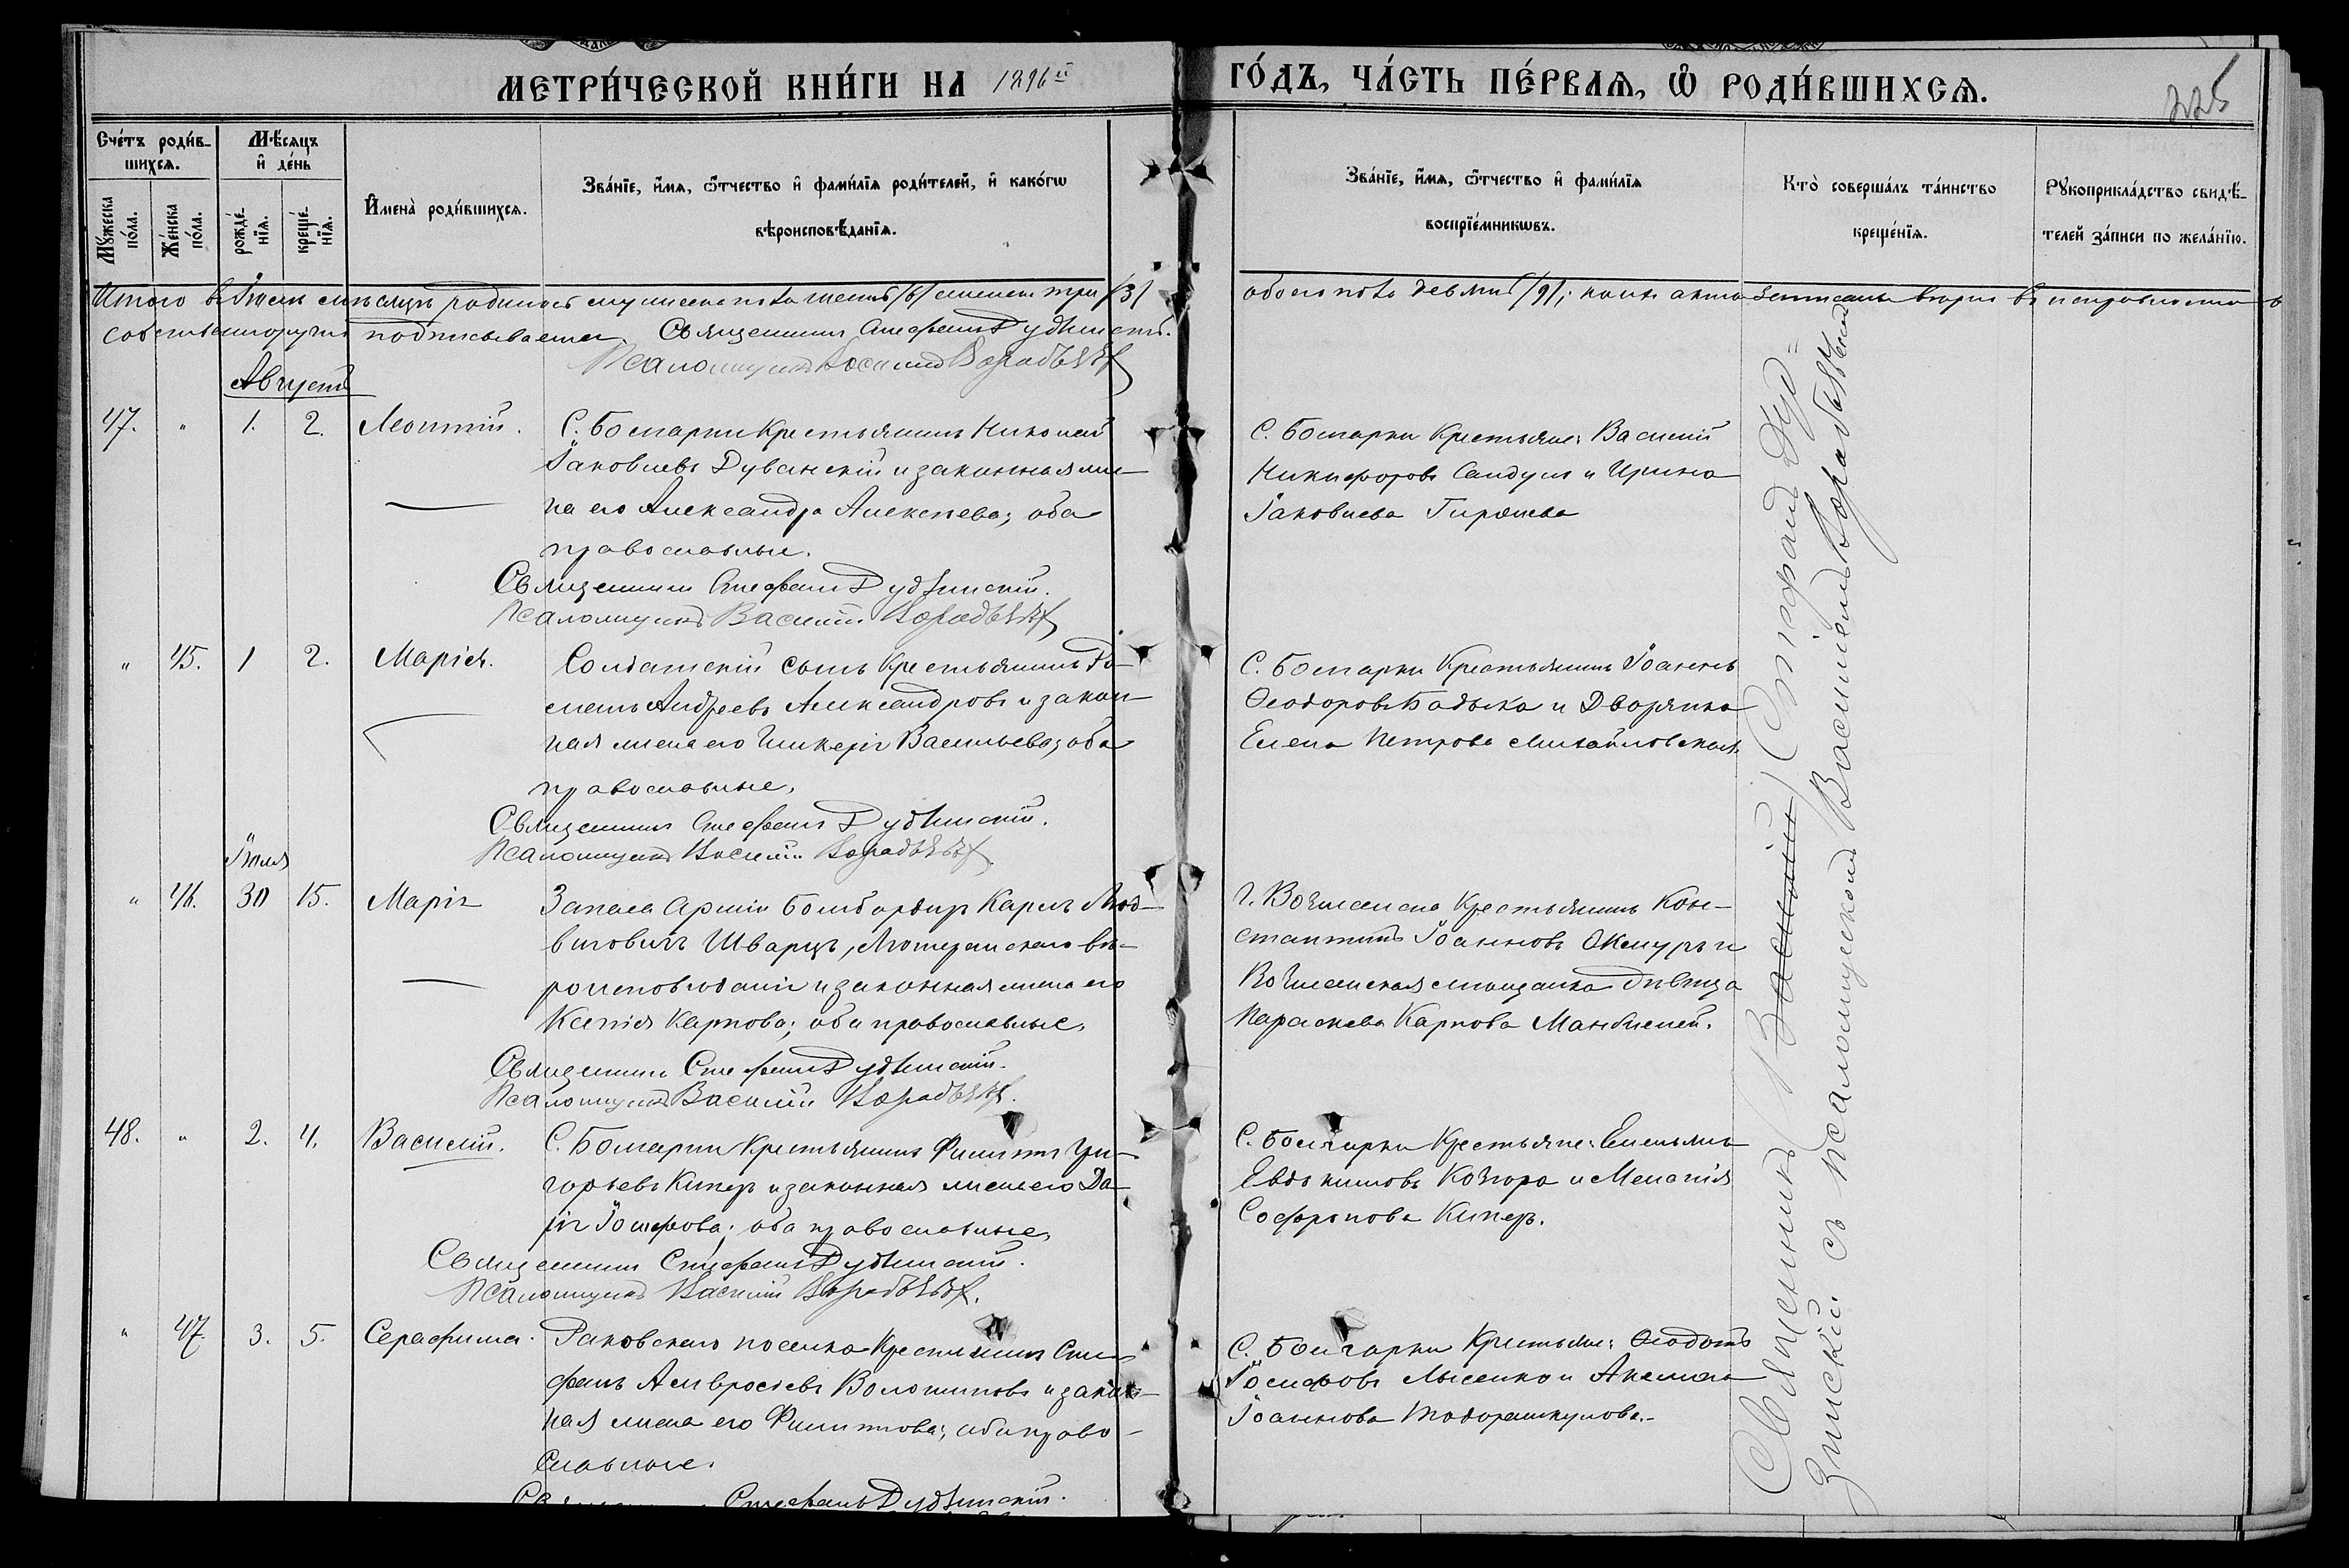 МЕТРИ́ЧЕСКОЙ КНИ́ГИ НА 1896й ГО́ДЪ, ЧА́СТЬ ПЕ́РВАЯ, Ѡ҆ РОДИ́ВШИХСѦ.
225
Сче́тъ роди́в-
шихсѧ.
Мѣ́сѧцъ
и҆ де́нь
И҆мена̀ роди́вшихсѧ.
Зва́нїе, и҆́мѧ, ѻ҆́тчество и҆ фами́лїѧ роди́телей, и҆ како́гѡ
вѣроисповѣ́данїѧ.
Зва́нїе, и҆́мѧ, ѻ҆́тчество и҆ фами́лїѧ
воспрїе́мникѡвъ.
Кто̀ соверша́лъ та́инство
креще́нїѧ.
Рꙋкоприкла́дство свидѣ́-
телей за́писи по жела́нїю.
Мꙋ́жеска
по́ла.
Же́нска
по́ла.
рожде́-
нїѧ.
креще́-
нїѧ.
Итого въ Іюлѣ мѣсяцѣ родилось мужеска пола шесть /6/ женска три /3/ обоего пола девять /9/;
собственноручно подписываемся. Священникъ Стефанъ Дудзинскій.
Псаломщикъ Василій Воробьевъ
Августъ
47. " 1. 2. Леонтій.
С. Болгарки Крестьянинъ Николай
Іаковлевъ Дуванскій и законная же-
на его Александра Алексѣева; оба
православные.
Священникъ Стефанъ Дудзинскій.
Псаломщикъ Василій Воробьевъ
С. Болгарки Крестьяне: Василій
Никифоровъ Сандулъ и Ирина
Іаковлева
" 45. 1 2. Марія.
Солдатскій сынъ Крестьянинъ Ро-
манъ Андреевъ Александровъ и закон-
ная жена его Гликерія Васильева; оба
православные.
Священникъ Стефанъ Дудзинскій.
Псаломщикъ Василій Воробьевъ
С. Болгарки Крестьянинъ Іоаннъ
Ѳеодоровъ Бадыка и Дворянка
Елена Петрова Михайловская.
Іюля
" 46. 30 15. Марія
Запаса Арміи Бомбардиръ Карлъ Люд-
виговичъ Шварцъ, Лютеранскаго вѣ-
роисповѣданія и законная жена его
Ксенія Карпова; оба православные.
Священникъ Стефанъ Дудзинскій.
Псаломщикъ Василій Воробьевъ.
г. Вознесенска Крестьянинъ Кон-
стантинъ Іоанновъ и
Вознесенская мѣщанка дѣвица
Параскева Карпова
48. " 2. 4. Василій.
С. Болгарки Крестьянинъ Филиппъ Гри-
горьевъ Киперъ и законная жена его Да-
рія Іосифова; оба православные.
Священникъ Стефанъ Дудзинскій.
Псаломщикъ Василій Воробьевъ.
С. Болгарки Крестьяне: Емельянъ
Евдокимовъ Козыра и Меланія
Софронова Киперъ.
" 47. 3. 5. Серафима.
Раковскаго поселка Крестьянинъ Сте-
фанъ Амвросіевъ Волошиновъ и закон-
ная жена его Филиппова; оба право-
славные.
Стефанъ Дудзинскій.
С. Болгарки Крестьяне: Ѳеодотъ
Іосифовъ Лысенко и Акелина
Іоаннова
Священникъ (Василій) Стефанъ Дуд=
зинскій съ псаломщикомъ Василіемъ Воробьевымъ